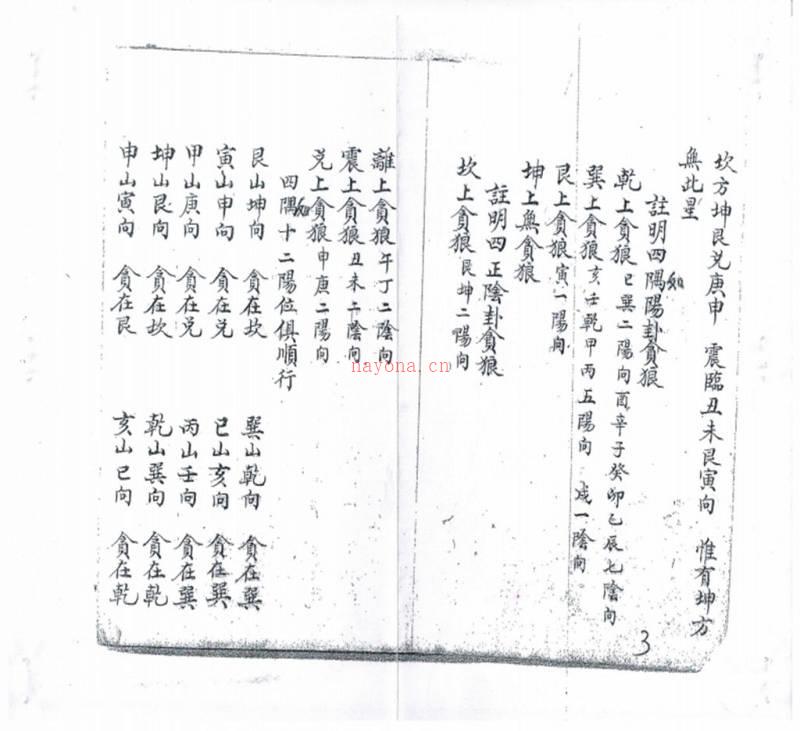 坎方坤艮兑庚申　震臨丑未艮寅向　惟有坤方
無此星
註明四隅陽卦貪狼
如
乾上貪狼巳巽二陽向酉辛子癸卯乙辰七陰向
巽上貪狼亥壬乾甲丙五陽向　戌一陰向
艮上貪狼寅一陽向
坤上無貪狼
註明四正陰卦貪狼
坎上貪狼艮坤二陽向
離上貪狼午丁二陰向
震上貪狼丑未二陰向
兑上貪狼申庚二陽向
四隅十二陽位俱順行
如
艮山坤向　貪在坎　巽山乾向　貪在巽
寅山申向　貪在兑　巳山亥向　貪在巽
甲山庚向　貪在兑　丙山壬向　貪在巽
坤山艮向　貪在坎　乾山巽向　貪在乾
申山寅向　貪在艮　亥山巳向　貪在乾
3
nayona.cn